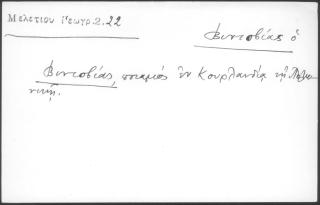 Μελετίου Γεωγρ. 2. 22
Βιντοβίας ὁ
Βιντοβίας, ποταμός ἐν Κουρλανδίᾳ τῆς Πολω
νικῆς.